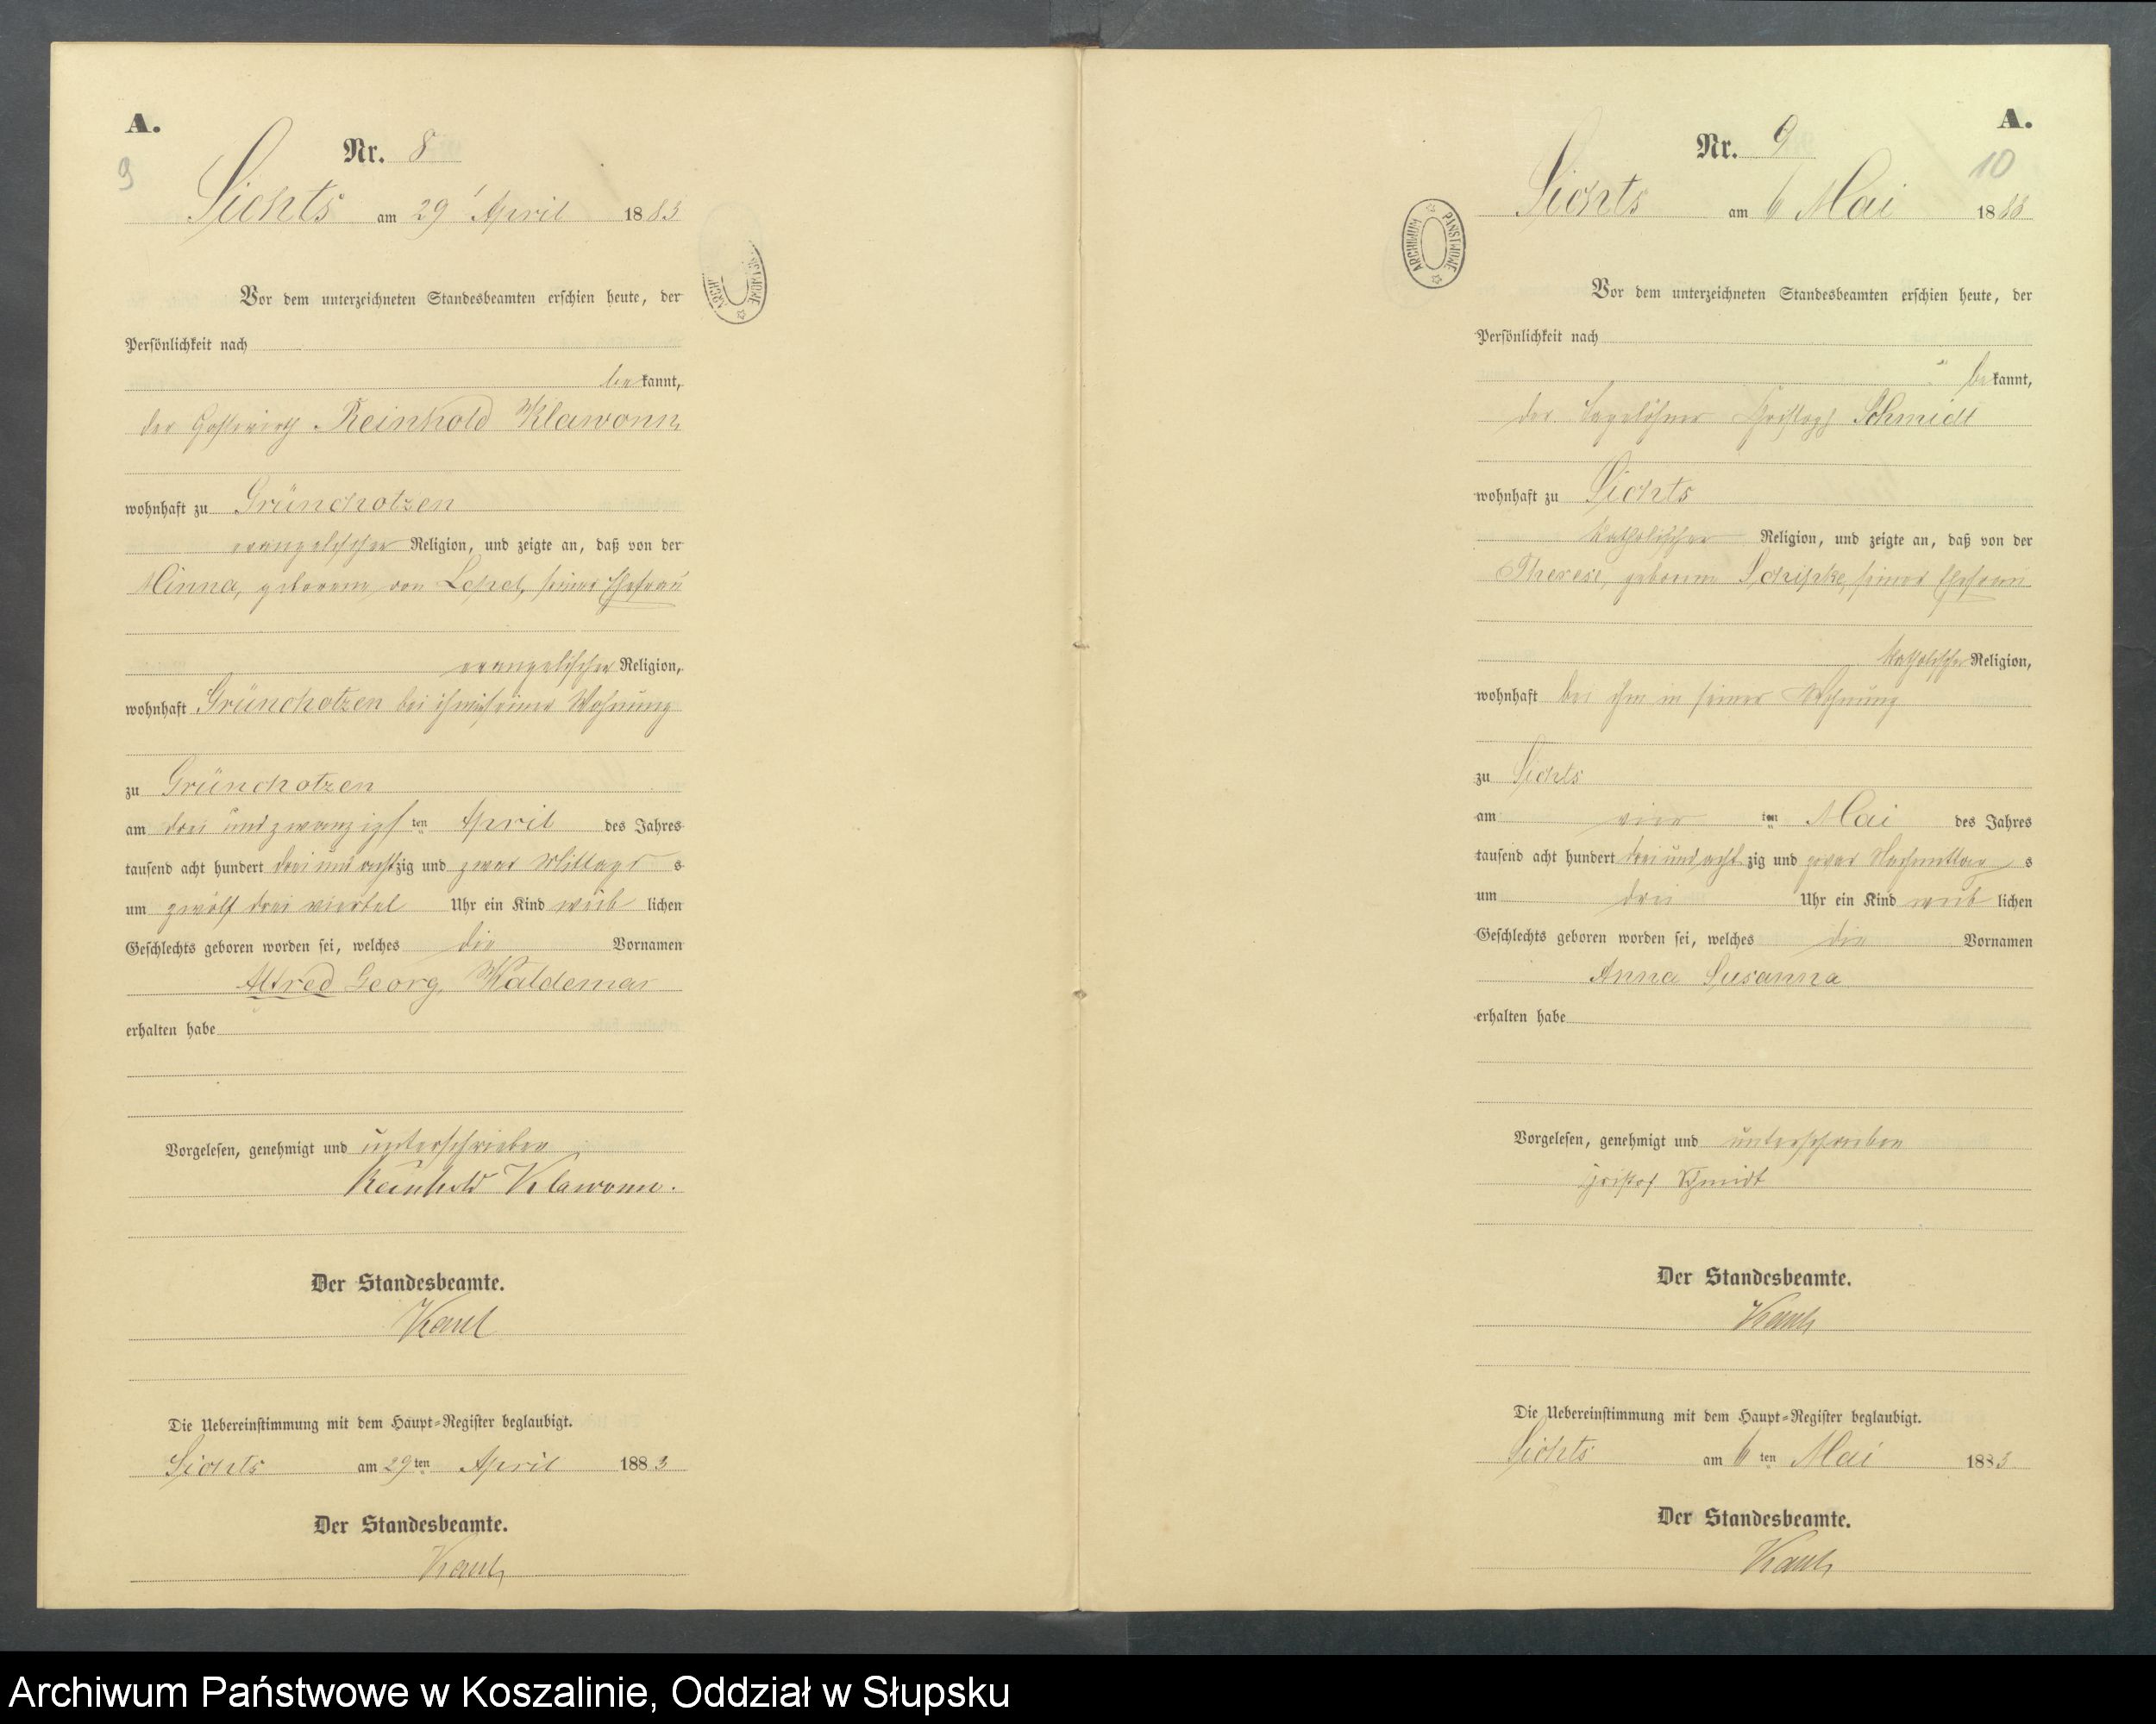 A.
9
Nr. 8
Sichts am 29 April 1883
Vor dem unterzeichneten Standesbeamten erschien heute, der
Persönlichkeit nach
bekannt,
der Gastwirth Reinhold Klawonn
wohnhaft zu Grünchotzen
evangelischer Religion, und zeigte an, daß von der
Minna, geborene von Lepel, seiner Ehefrau
evangelischer Religion,
wohnhaft Grünchotzen bei ihm in seiner Wohnung
zu Grünchotzen
am drei und zwanzigsten April des Jahres
tausend acht hundert drei und achtzig und zwar Mittags s
um zwölf drei viertel Uhr ein Kind weiblichen
Geschlechts geboren worden sei, welches die Vornamen
Alfred Georg Waldemar
erhalten habe
Vorgelesen, genehmigt und unterschrieben
Reinhold Klawonn.
Der Standesbeamte.
Die Uebereinstimmung mit dem Haupt-Register beglaubigt.
Sichts am 29ten April 1883
Der Standesbeamte.
ARCHIWUM PAŃSTWOWE
A.
10
Nr. 9
Sichts am 6 Mai 1883
Vor dem unterzeichneten Standesbeamten erschien heute, der
Persönlichkeit nach
bekannt,
der Tagelöhner Christoph Schmidt
wohnhaft zu Sichts
katholischer Religion, und zeigte an, daß von der
Therese, geborene seiner Ehefrau
katholischer Religion,
wohnhaft bei ihm in seiner Wohnung
zu Sichts
am vierten Mai des Jahres
tausend acht hundert drei und achtzig und zwar Nachmittags
um drei Uhr ein Kind weiblichen
Geschlechts geboren worden sei, welches die Vornamen
Anna Susanna
erhalten habe
Vorgelesen, genehmigt und unterschrieben
Schmidt
Der Standesbeamte.
Die Uebereinstimmung mit dem Haupt-Register beglaubigt.
Sichts am 6ten Mai 1883
Der Standesbeamte.
Archiwum Państwowe w Koszalinie, Oddział w Słupsku